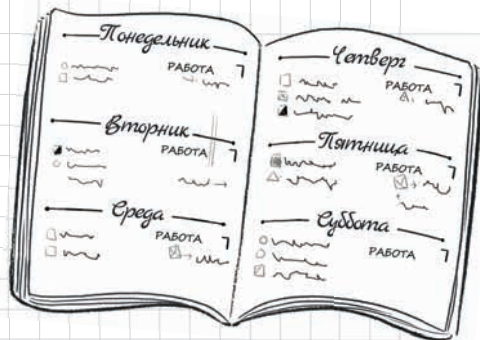 Понедельник
РАБОТА
Вторник
РАБОТА
Среда
РАБОТА
Четверг
РАБОТА
Пятница
РАБОТА
Суббота
РАБОТА